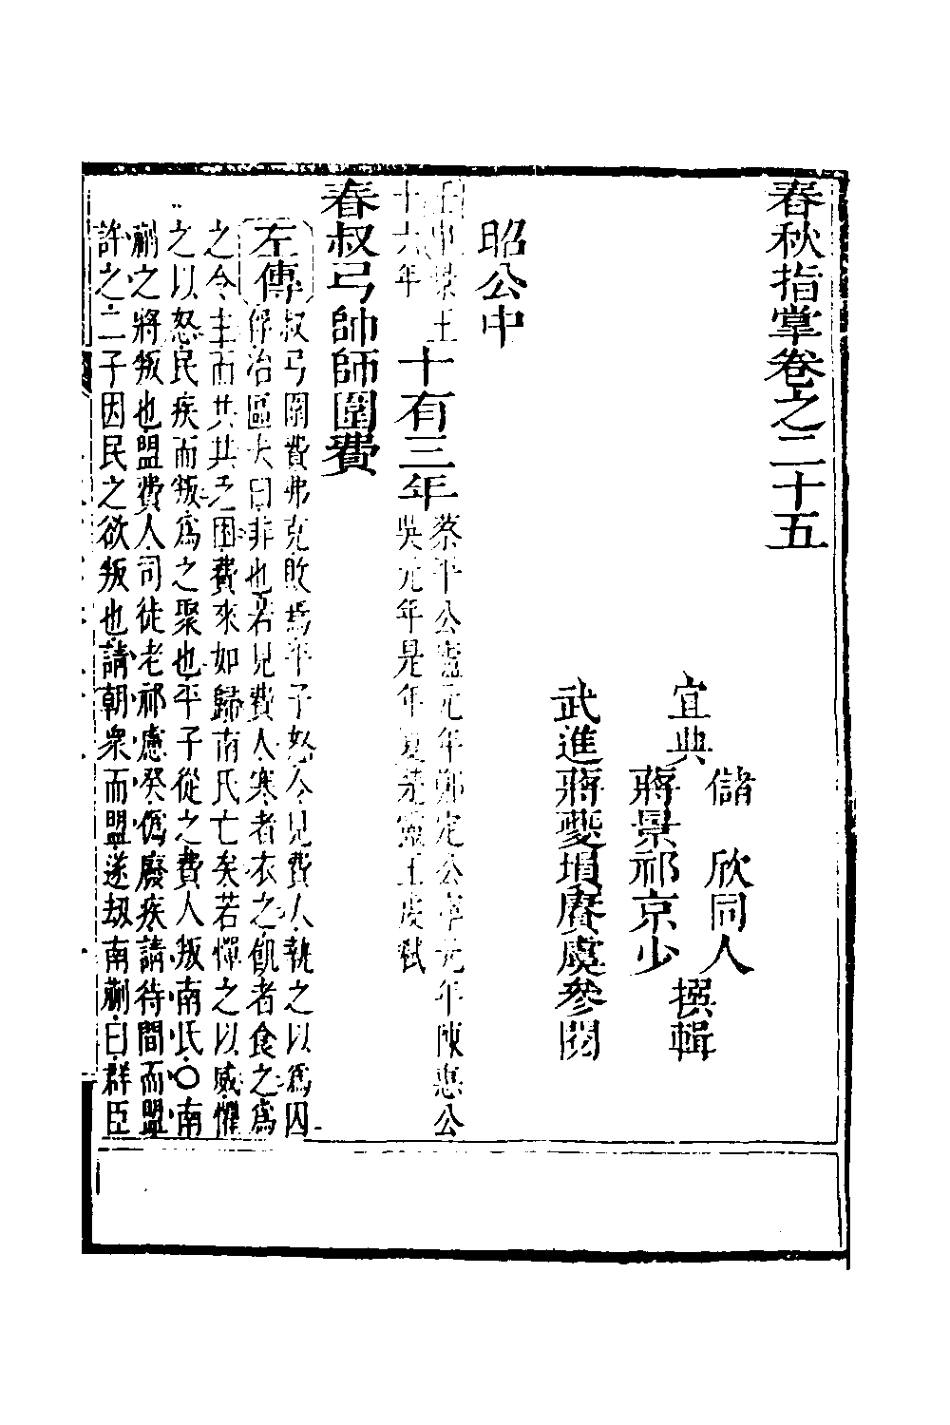 春秋指掌卷之二十五
儲欣同人
宜興
撰輯
蔣景祁京少
武進蔣夔塤賡虞參閱
昭公中
壬申景王
十六年
十有三年
蔡平公廬元年鄭定公寧元年陳惠公
吳元年是年夏楚靈王虔弒
春叔弓帥師圍費
左傳
叔弓圍費弗克敗焉平子怒令見費人執之以爲囚
俘冶區夫曰非也若見費人寒者衣之飢者食之爲
之令主而共其乏困費來如歸南氏亡矣若憚之以威懼
之以怒民疾而叛爲之聚也平子從之費人叛南氏○南
蒯之將叛也盟費人司徒老祁慮癸僞廢疾請待間而盟
許之二子因民之欲叛也請朝衆而盟遂劫南蒯曰群臣